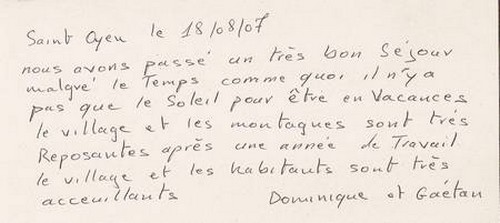 Saint Oyen le 18/08/07
nous avons passé un très bon Séjour
malgré le Temps comme quoi il n'y a
pas que le Soleil pour être en Vacances
le village et les montagnes sont très
Reposantes après une année de Travail
le village et les habitants sont très
acceuillants Dominique et Gaétan